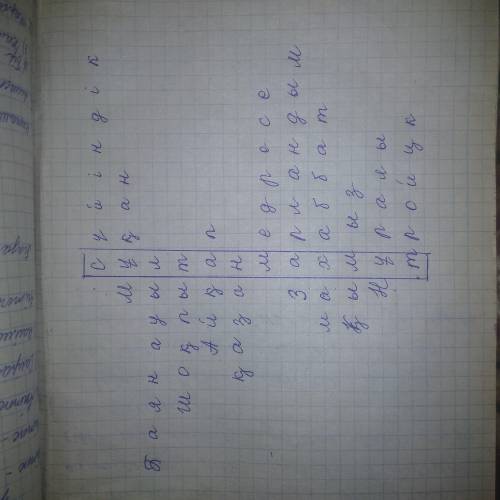 Сүйіндік
Мұқан
Баянауыл
Шоқпыт
Айқап
қазан
медресе
Зарландым
махаббат
Қымыз
Нұралы
тройцк